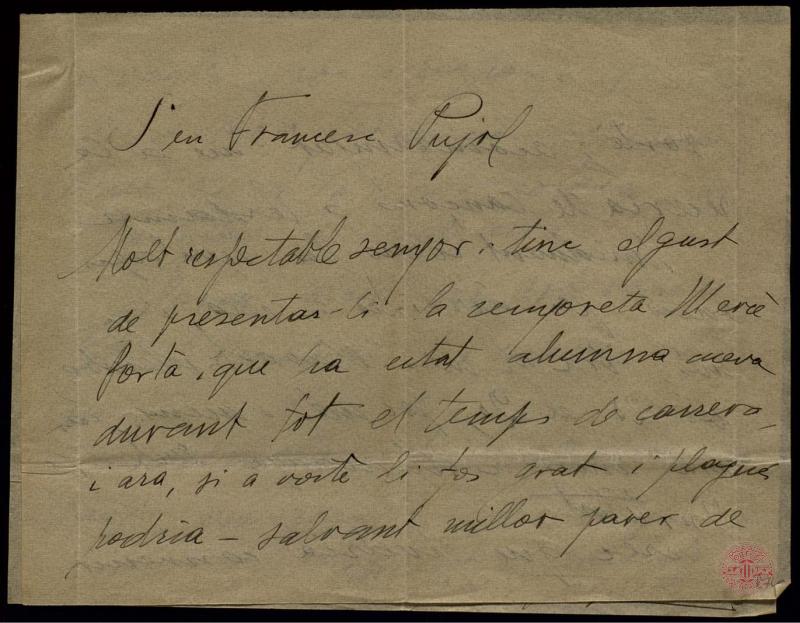 S'en Francesc Pujol
Molt respectable senyor: tinc el gust
de presentar-li la senyoreta Mercè
Portà, que ha estat alumna meva
durant tot el temps de carrera,
i ara, si a vostè li fos grat i plagués
podria - salvant millor parer de